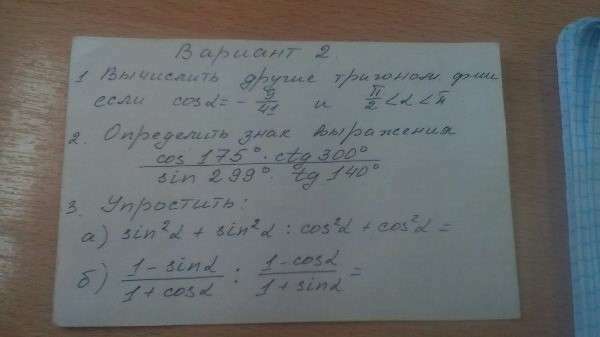 Вариант 2.
1 Вычислить другие тригоном. ф-ии
если cosα = - 9/41 и π/2 < α < π
2. Определить знак выражения
cos 175° · ctg 300°
sin 299° · tg 140°
3. Упростить:
а) sin²α + sin²α : cos²α + cos²α =
б) 1 - sinα / 1 + cosα : 1 - cosα / 1 + sinα =